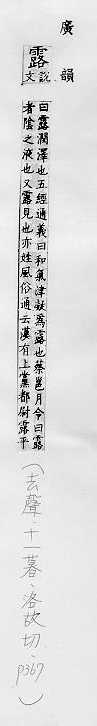 廣韻
露
說文
曰露潤澤也五經通義曰和氣津凝爲露也蔡邕月令曰露
者陰之液也又露見也亦姓風俗通云漢有上黨都尉露平
(去聲、十一暮、洛故切、p367)